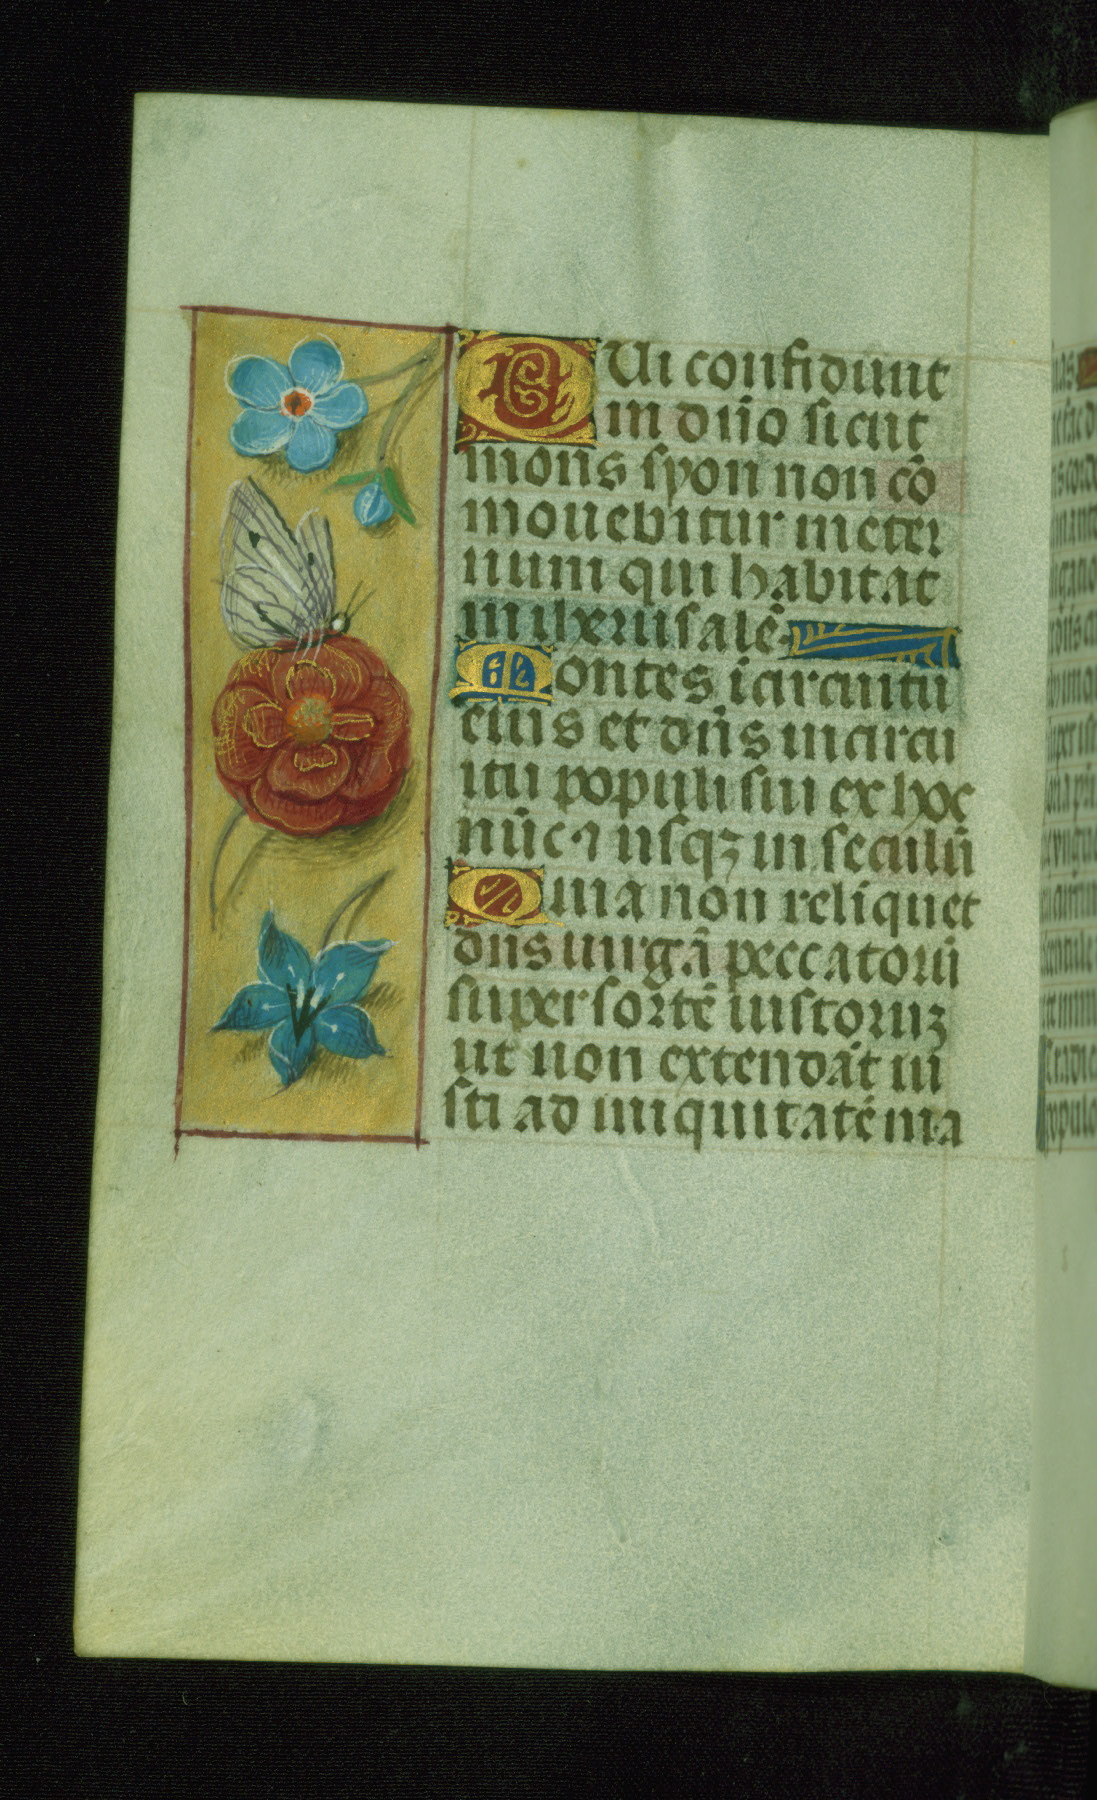 QUi confidunt
in dño sicut
mons syon non cõ
mouebitur in eter
num qui habitat
in iherusalẽ.
Montes i circuitu
eius et dñs in circu
itu populi sui ex hoc
nũc ⁊ usqꝫ in seculũ
Quia non reliquet
dñs uirgã peccatorũ
super sortẽ iustoruꝫ
ut non extendãt iu
sti ad iniquitatẽ ma